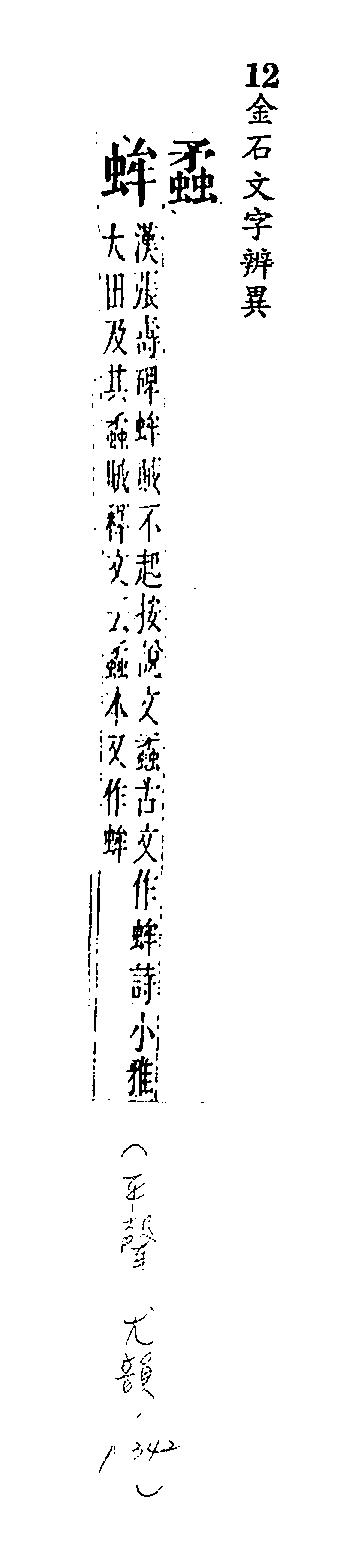 12金石文字辨異
蟊
蛑
漢張壽碑蛑賊不起按說文蟊古文作蛑詩小雅
大田及其蟊賊釋文云蟊本又作蛑
(平聲 尤韻.
p.342)